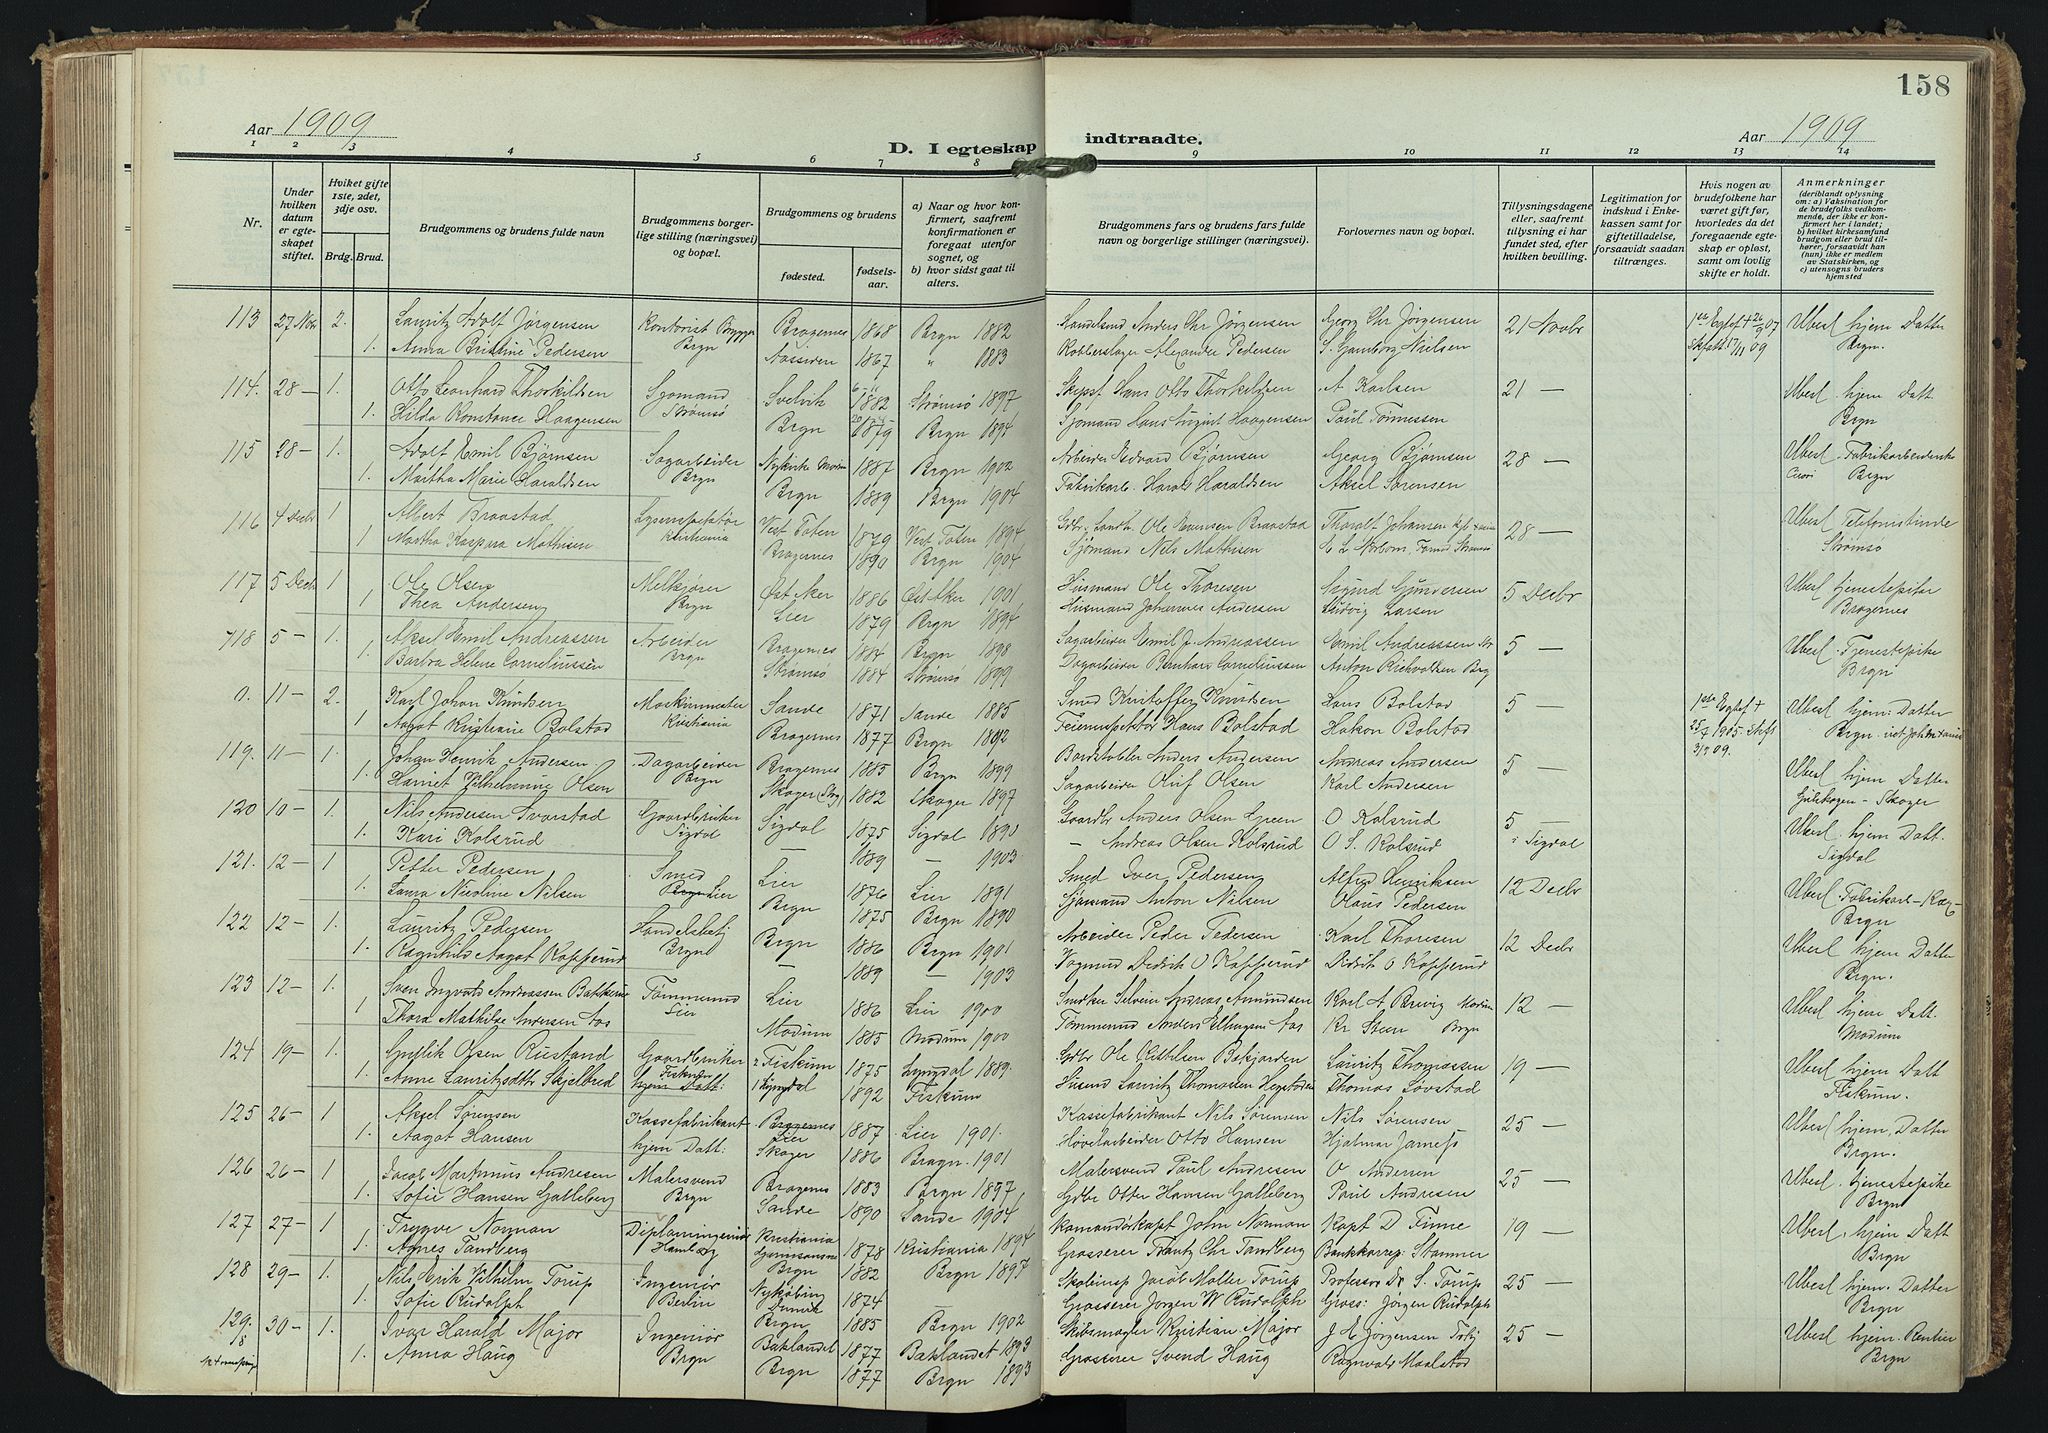 158
Aar 1909
D. I egteskap indtraadte.
Aar 1909
1 2 3 4 5 6 7 8 9 10 11 12 13 14
Nr.
Under hvilken datum er egteskapet stiftet.
Hviket gifte 1ste, 2det, 3dje osv.
Brdg. Brud.
Brudgommens og brudens fulde navn
Brudgommens borgerlige stilling (næringsvei) og bopæl.
Brudgommens og brudens
fødested.
fødselsaar.
a) Naar og hvor konfirmert, saafremt konfirmationen er foregaat utenfor sognet, og
b) hvor sidst gaat til alters.
Brudgommens fars og brudens fars fulde navn og borgerlige stillinger (næringsvei).
Forlovernes navn og bopæl.
Tillysningsdagene eller, saafremt tillysning ei har fundet sted, efter hvilken bevilling.
Legitimation for indskud i Enkekassen samt for giftetilladelse, forsaavidt saadan tiltrænges.
Hvis nogen av brudefolkene har været gift før, hvorledes da det foregaaende egteskap er opløst, samt om lovlig skifte er holdt.
Anmerkninger
(deriblandt oplysning om: a) Vaksination for de brudefolks vedkommende, der ikke er konfirmert her i landet; b) hvilket kirkesamfund brudgom eller brud tilhører, forsaavidt han (hun) ikke er medlem av Statskirken, og c) utensogns bruders hjemsted
113 27 Nov 2. Lauritz Adolf Jørgensen Kontorist Bragernes 1868 Brgn 1882 Handelsmd Anders Chr Jørgensen Georg Chr Jørgensen 21 Novbr Ubesl. hjem. Datter
1. Anna Pedersen Brgn 1867 " 1883 Kobberslager Alexander Pedersen S. Gamborg Nielsen Brgn.
114. 28 — 1. Otto Leonhard Thorkildsen Sjømand Svelvik 1882 Strømsø 1897 Skipsf Hans Otto Thorkildsen A Karlsen 21 — Ubesl. hjem Datt
1. Hilda Konstance Haagensen Strømsø Brgn 1879 Brgn 1894 Sjømand Hans August Haagensen Paul Tønnessen Brgn
115 28 — 1. Adolf Emil Bjørnsen Sagarbeider Nykirke Modum 1887 Brgn 1902 Arbeider Edvard Bjørnsen Georg Bjørnsen 28 — Ubesl. Fabrikarbeiderske
1. Martha Marie Haraldsen Brgn Brgn 1889 Brgn 1904 Fabrikarb. Harald Haraldsen Aksel Sørensen Brgn
116 4 Decbr 1 Albert Braastad Vest Toten 1879 Vest Toten 1894 Ole Evensen Braastad Thoralf Johansen 28 — Ubesl Telefonistinde
1 Martha Kaspara Mathisen Kristiania Bragernes 1890 Brgn 1904 Sjømand Nils Mathisen Strømsø
117 5 Decbr 1 Ole Olsen Melkekjører Øst Aker 1886 Øst Aker 1901 Husmand Ole Thoresen Sigurd Gundersen 5 Decbr Ubesl Tjenestepike
1 Thea Andersen Brgn Lier 1879 Brgn 1894 Husmand Johannes Andersen Ludvig Larsen Bragernes
118 5 — 1. Aksel Emil Andreassen Arbeider Bragernes 1884 Brgn 1898 Sagarbeider Emil J. Andreassen Emil Andreassen 5 — Ubesl. Tjenestepike
1. Barbra Helene Corneliussen Brgn Strømsø 1884 Strømsø 1899 Dagarbeider Bernhard Corneliussen Anton Brg Brgn
0. 11 — 2. Karl Johan Knudsen Maskinmester Sande 1871 Sande 1885 Smed Kristoffer Knudsen Hans Bolstad 5 — Ubesl hjem: Datter
1 Aagot Kristiane Bolstad Kristiania Bragernes 1877 Brgn 1892 Feierinspektør Hans Bolstad Hakon Bolstad Brgn.
119. 11 — 1. Johan Henrik Andersen Dagarbeider Bragernes 1885 Brgn 1899 Bordstabler Anders Andersen Andreas Andersen 5 — Ubesl hjem Datter
1. Harriet Vilhelmine Olsen Brgn Skoger 1882 Skoger 1897 Sagarbeider Oluf Olsen Karl Andersen Gulskogen — Skoger
120 10 — 1. Nils Andersen Gaardbruker Sigdal 1875 Sigdal 1890 Gaardbr Anders Olsen O Kolsrud 5 — Ubesl. hjem Datt.
1. Kari Kolsrud Sigdal 1889 — 1903 — Andreas Olsen Kolsrud O S. Kolsrud i Sigdal Sigdal
121. 12 — 1 Petter Pedersen Smed Lier 1876 Lier 1891 Smed Iver Pedersen Alfred Henriksen 12 Decbr Ubesl.
1. Laura Nicoline Nilsen Lier Brgn 1875 Brgn 1890 Sjømand Anton Nilsen Olaus Pedersen Brgn
122 12 — 1. Lauritz Pedersen Handelsbetj Brgn 1886 Brgn 1901 Arbeider Peder Pedersen Karl Thoresen 12 Decbr Ubesl hjem Datter
1. Ragnhild Aagot Kopperud Brgn — 1889 — 1903 Vognmd Didrik O Kopperud Didrik O Kopperud Brgn.
123 12 — 1. Sven Ingvald Andreassen Bakkerud Tømmermd Lier 1886 Lier 1900 Andreas Amundsen Karl A Brevig Modum 12 — Ubesl hjem Datt.
1 Thora Mathilde Andersen Aas Lier Modum 1885 Modum 1900 Tømmermd Anders Aas Kr Steen Brgn Modum
124 19 — 1. Gullik Olsen Rustand Gaardbruker Fiskum 1875 Lyngdal 1889. Gdbr Ole Kittilsen Lauritz Thomassen 19 — Ubesl hjem Datt
1. Anne Lauritzdtr Skjelbred hjem Datt: Lyngdal 1892 Fiskum Lauritz Thomassen Thomas Løvstad Fiskum.
125 26 — 1 Aksel Sørensen Kassefabrikant Lier 1887 Lier 1901. Kassefabrikant Nils Sørensen Nils Sørensen 25 — Ubesl hjem. Datter
1. Aagot Hansen hjem Datt: Skoger 1886 Bragn. 1901 Høvelarbeider Otto Hansen Hjalmar Brgn.
126 26 — 1 Jacob Martinius Andresen Malersvend Bragernes 1883 Brgn 1897 Malersvend Paul Andresen O Andersen 25 — Ubesl. Tjenestepike
1. Sofie Hansen Galleberg Brgn Sande 1890 Sande 1904 Gdbr Otter Hansen Galleberg Paul Andresen Brgn
127 27 — 1 Trygve Norman Diplomingeniør Kristiania 1878 Kristiania 1894 Komandørkapt John Norman Kapt D Finne 19 — Ubesl. hjem Datt
1. Agnes Tandberg Hamborg Brgn 1882 Brgn 1897 Grosserer Frantz Chr Tandberg Brgn
128 29 — 1. Nils Erik Vilhelm Torup Ingeniør Nykøbing Danmk 1874 — Skolinsp Jacob Møller Torup Professor Dr. S. Torup 25 — Ubesl hjem. Datter
1. Sofie Rudolph Berlin Brgn 1885 Brgn 1902 Grosserer Jørgen W Rudolph Gross: Jørgen Rudolph Brgn
129. 30 — 1. Ivar Harald Major Ingeniør Baklandet 1877 Baklandet 1893 Skibsmægler Kristian Major J A Jørgensen 25 — Ubesl hjem. Rentier
1. Anna Haug Brgn Brgn 1877 Brgn 1893 Grosserer Svend Haug Ragnvald Maalstad Brgn